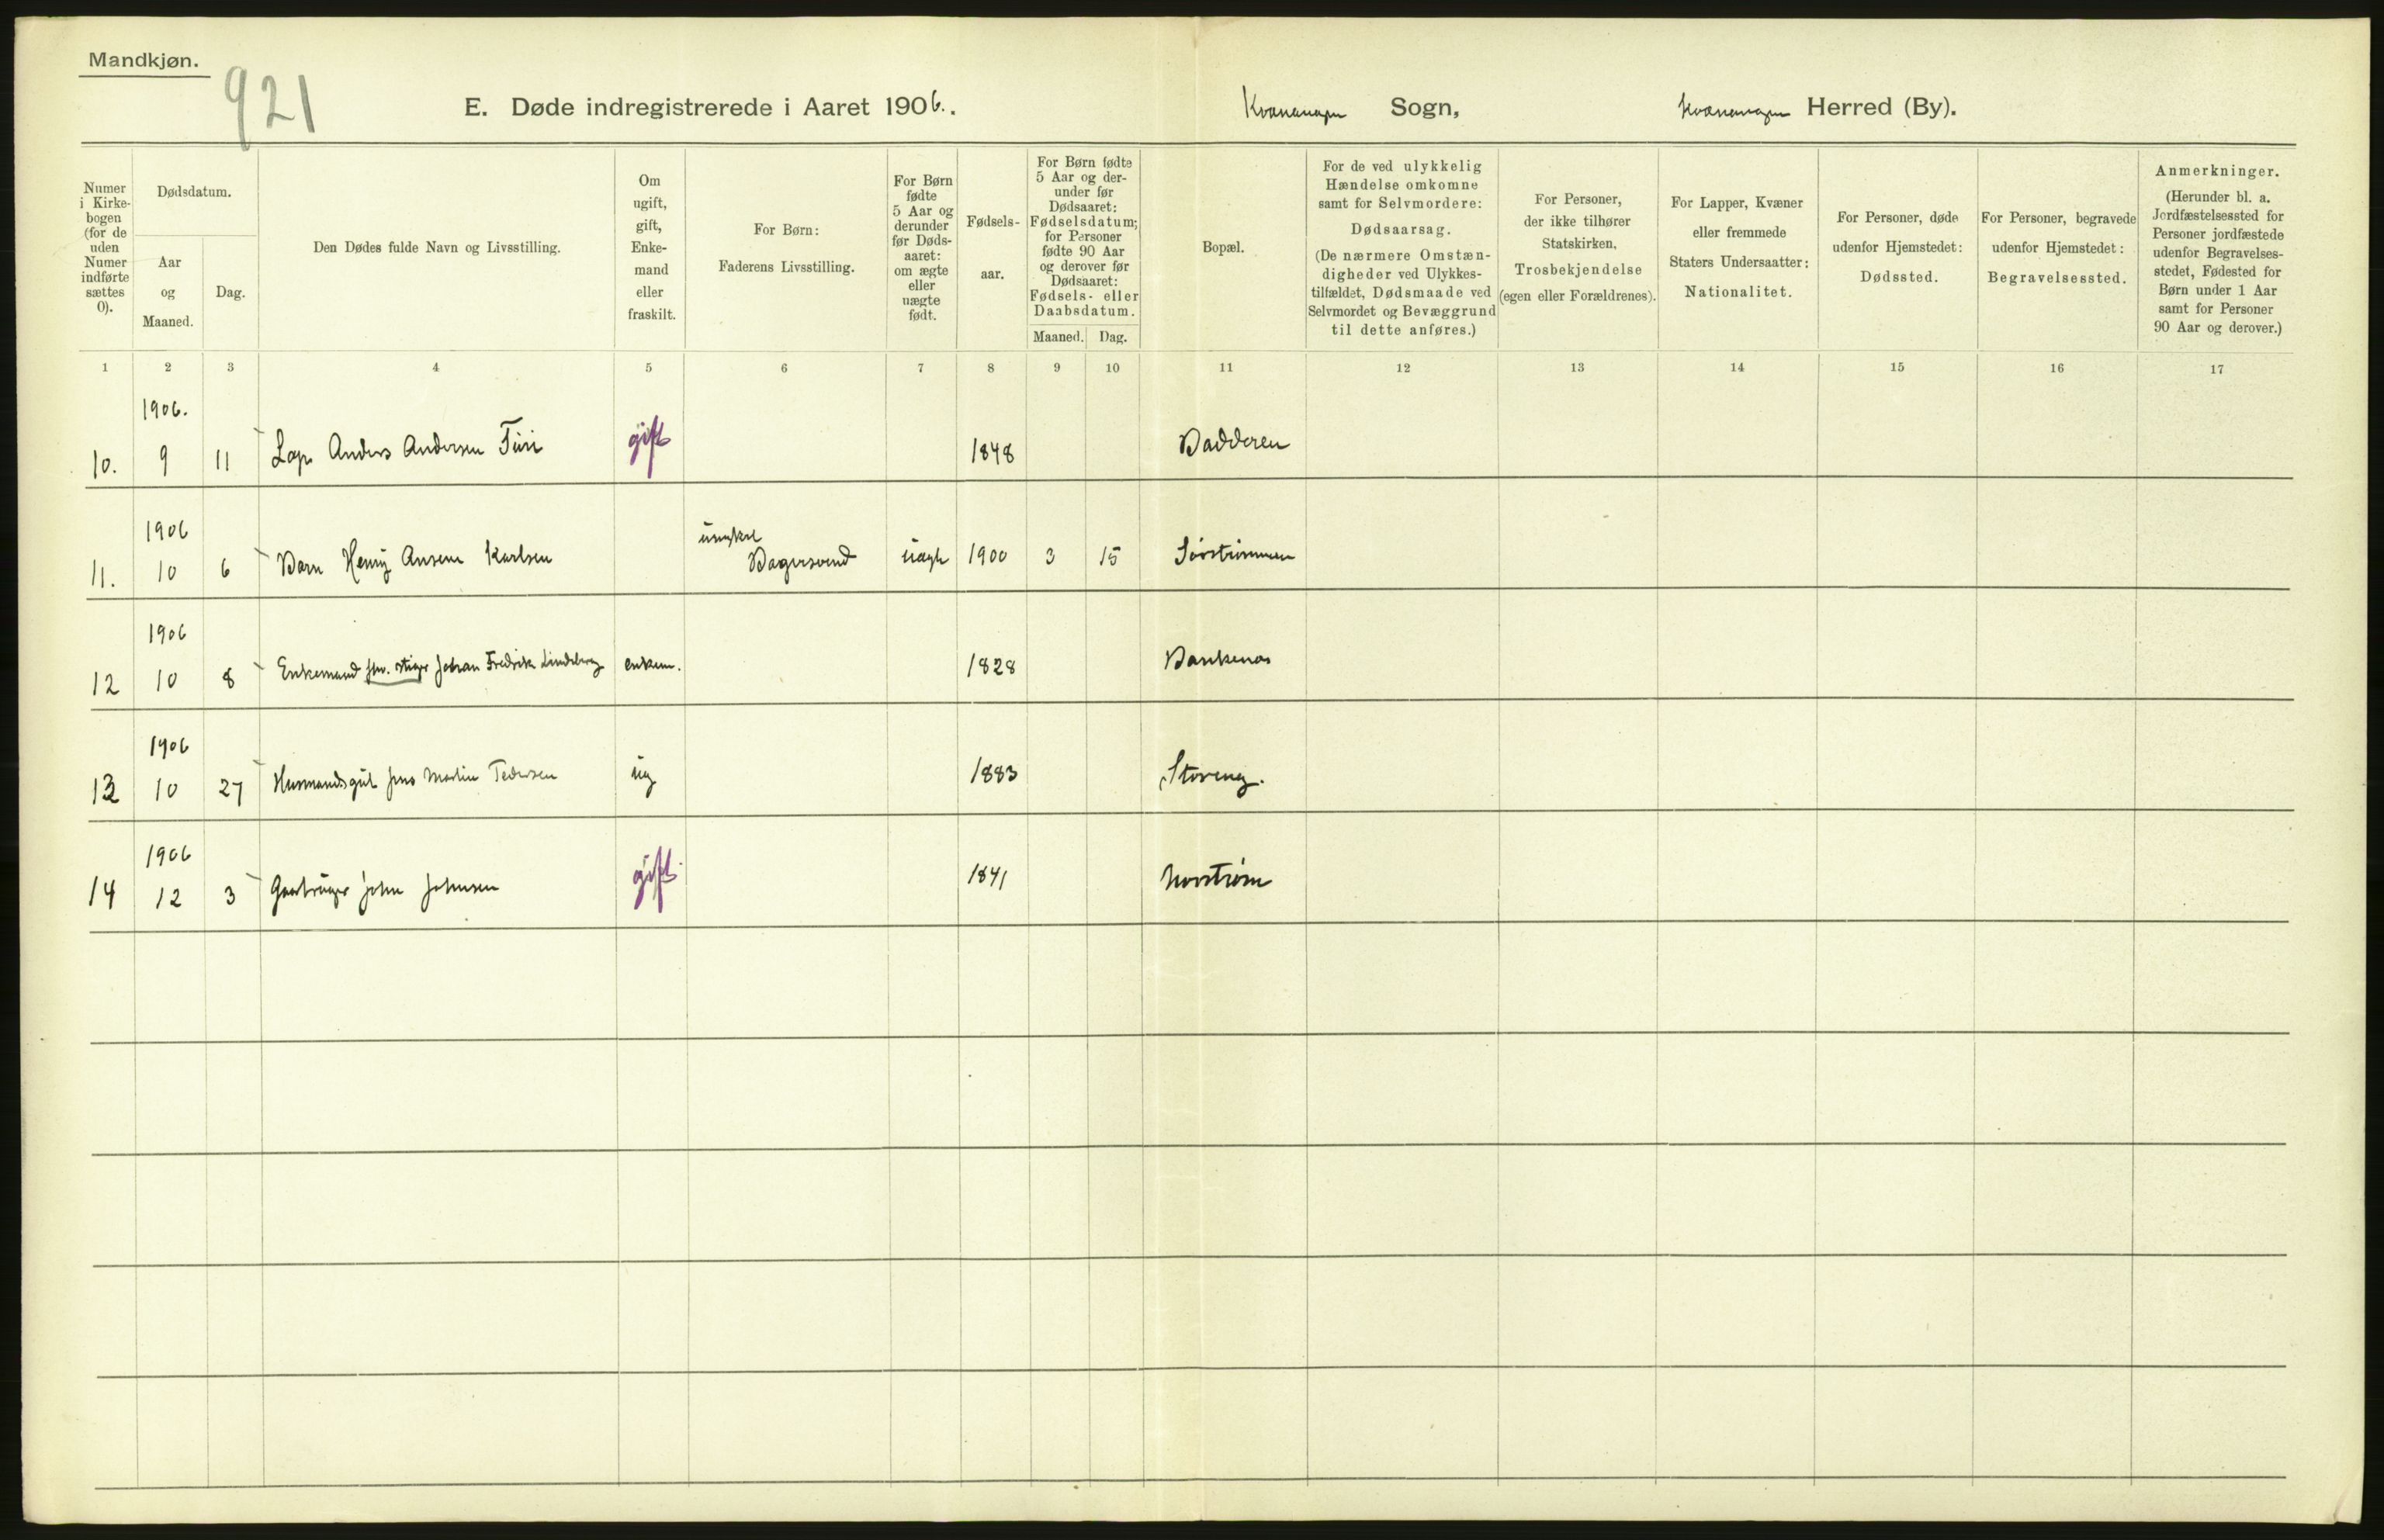 Mandkjøn.
921
E. Døde indregistrerede i Aaret 1906.. Kvænangen Sogn, Kvænangen Herred (By).
Numer i Kirke-bogen (for de uden Numer indførte sættes 0).
Dødsdatum.
Aar og Maaned.
Dag.
Den Dødes fulde Navn og Livsstilling.
Om ugift, gift, Enke-mand eller fraskilt.
For Børn:
Faderens Livsstilling.
For Børn fødte 5 Aar og derunder før Døds-aaret: om ægte eller uægte født.
Fødsels-aar.
For Børn fødte 5 Aar og der-under før Dødsaaret: Fødselsdatum; for Personer fødte 90 Aar og derover før Dødsaaret: Fødsels- eller Daabsdatum.
Maaned. Dag.
Bopæl.
For de ved ulykkelig Hændelse omkomne samt for Selvmordere:
Dødsaarsag.
(De nærmere Omstæn-digheder ved Ulykkes-tilfældet, Dødsmaade ved Selvmordet og Bevæggrund til dette anføres.)
For Personer, der ikke tilhører Statskirken,
Trosbekjendelse
(egen eller Forældrenes).
For Lapper, Kvæner eller fremmede Staters Undersaatter:
Nationalitet.
For Personer, døde udenfor Hjemstedet:
Dødssted.
For Personer, begravede udenfor Hjemstedet:
Begravelsessted.
Anmerkninger.
(Herunder bl. a. Jordfæstelsessted for Personer jordfæstede udenfor Begravelses-stedet, Fødested for Børn under 1 Aar samt for Personer 90 Aar og derover.)
1 2 3 4 5 6 7 8 9 10 11 12 13 14 15 16 17
1906.
10. 9 11 Lap Anders Andersen gift 1848 Badderen
1906
11. 10 6 Barn Henry Karlsen Bagersvend uægte 1900 3 15 Sørstrømmen
1906
12 10 8 Enkemand fhv. stiger Johan Fredrik Lindeberg enkem. 1828
1906
13 10 27 Husmandsgut Jens Martin Pedersen ug 1883 Storeng.
1906
14 12 3 Gaarbruger John Johnsen gift 1841